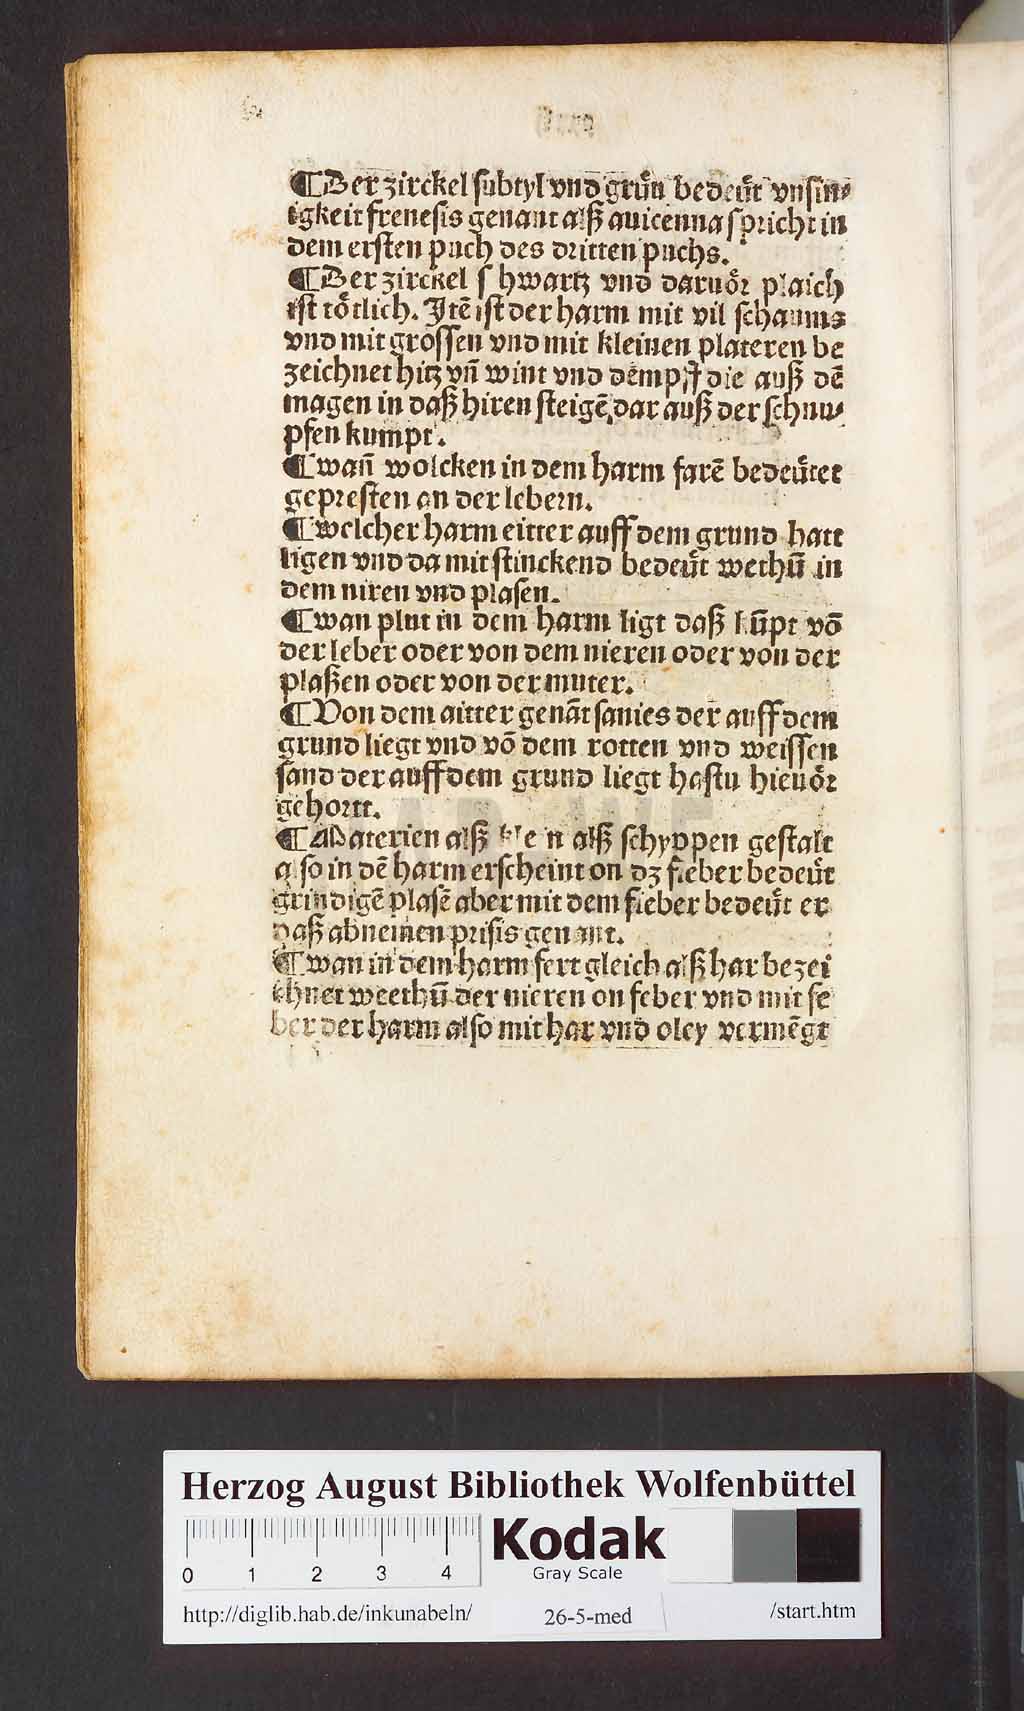 ¶Der zirckel subtyl vnd grůn bedeůt vnsin⸗
igkeit frenesis genant alß auicenna spricht in
dem ersten puch des dritten puchs.
¶Der zirckel s hwartz vnd daruǒr plaich
ist tǒtlich. Itē ist der harm mit vil schaums
vnd mit grossen vnd mit kleinen plateren be
zeichnet hitz vn̄ wint vnd dempff die auß dē
magen in daß hiren steigē dar auß der schnu⸗
pfen kumpt.
¶wan̄ wolcken in dem harm farē bedeůtet
gepresten an der lebern.
¶welcher harm eitter auff dem grund hatt
ligen vnd da mit stinckend bedeůt wethū in
dem niren vnd plasen.
¶wan plut in dem harm ligt daß kūpt vō
der leber oder von dem nieren oder von der
plaßen oder von der muter.
¶Von dem aitter genāt sanies der auff dem
grund liegt vnd vō dem rotten vnd weissen
sand der auff dem grund liegt hastu hieuǒr
gehortt.
¶Materien alß kle n alß schyppen gestalt
also in dē harm erscheint on dz fieber bedeůt
grindigē plasē aber mit dem fieber bedeůt er
daß abnemen prisis genant.
¶wan in dem harm fert gleich alß har bezei
chnet weethū der nieren on feber vnd mit fe
ber der harm also mit har vnd oley vermēgt
Herzog August Bibliothek Wolfenbüttel
0 1 2 3 4
Kodak
Gray Scale
http://diglib.hab.de/inkunabeln/ 26-5-med /start.htm